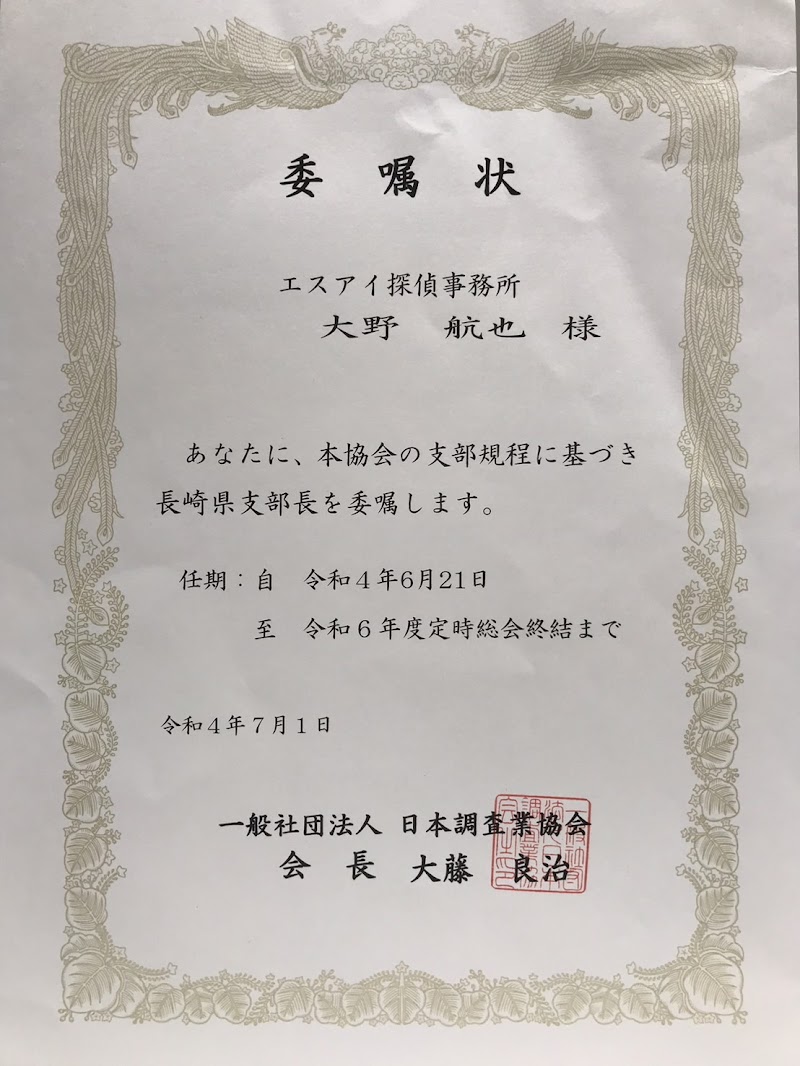 委嘱状
エスアイ探偵事務所
大野 航也 様
あなたに、本協会の支部規程に基づき
長崎県支部長を委嘱します。
任期：自 令和４年6月21日
至 令和６年度定時総会終結まで
令和４年７月１日
一般社団法人 日本調査業協会
会 長 大藤 良治